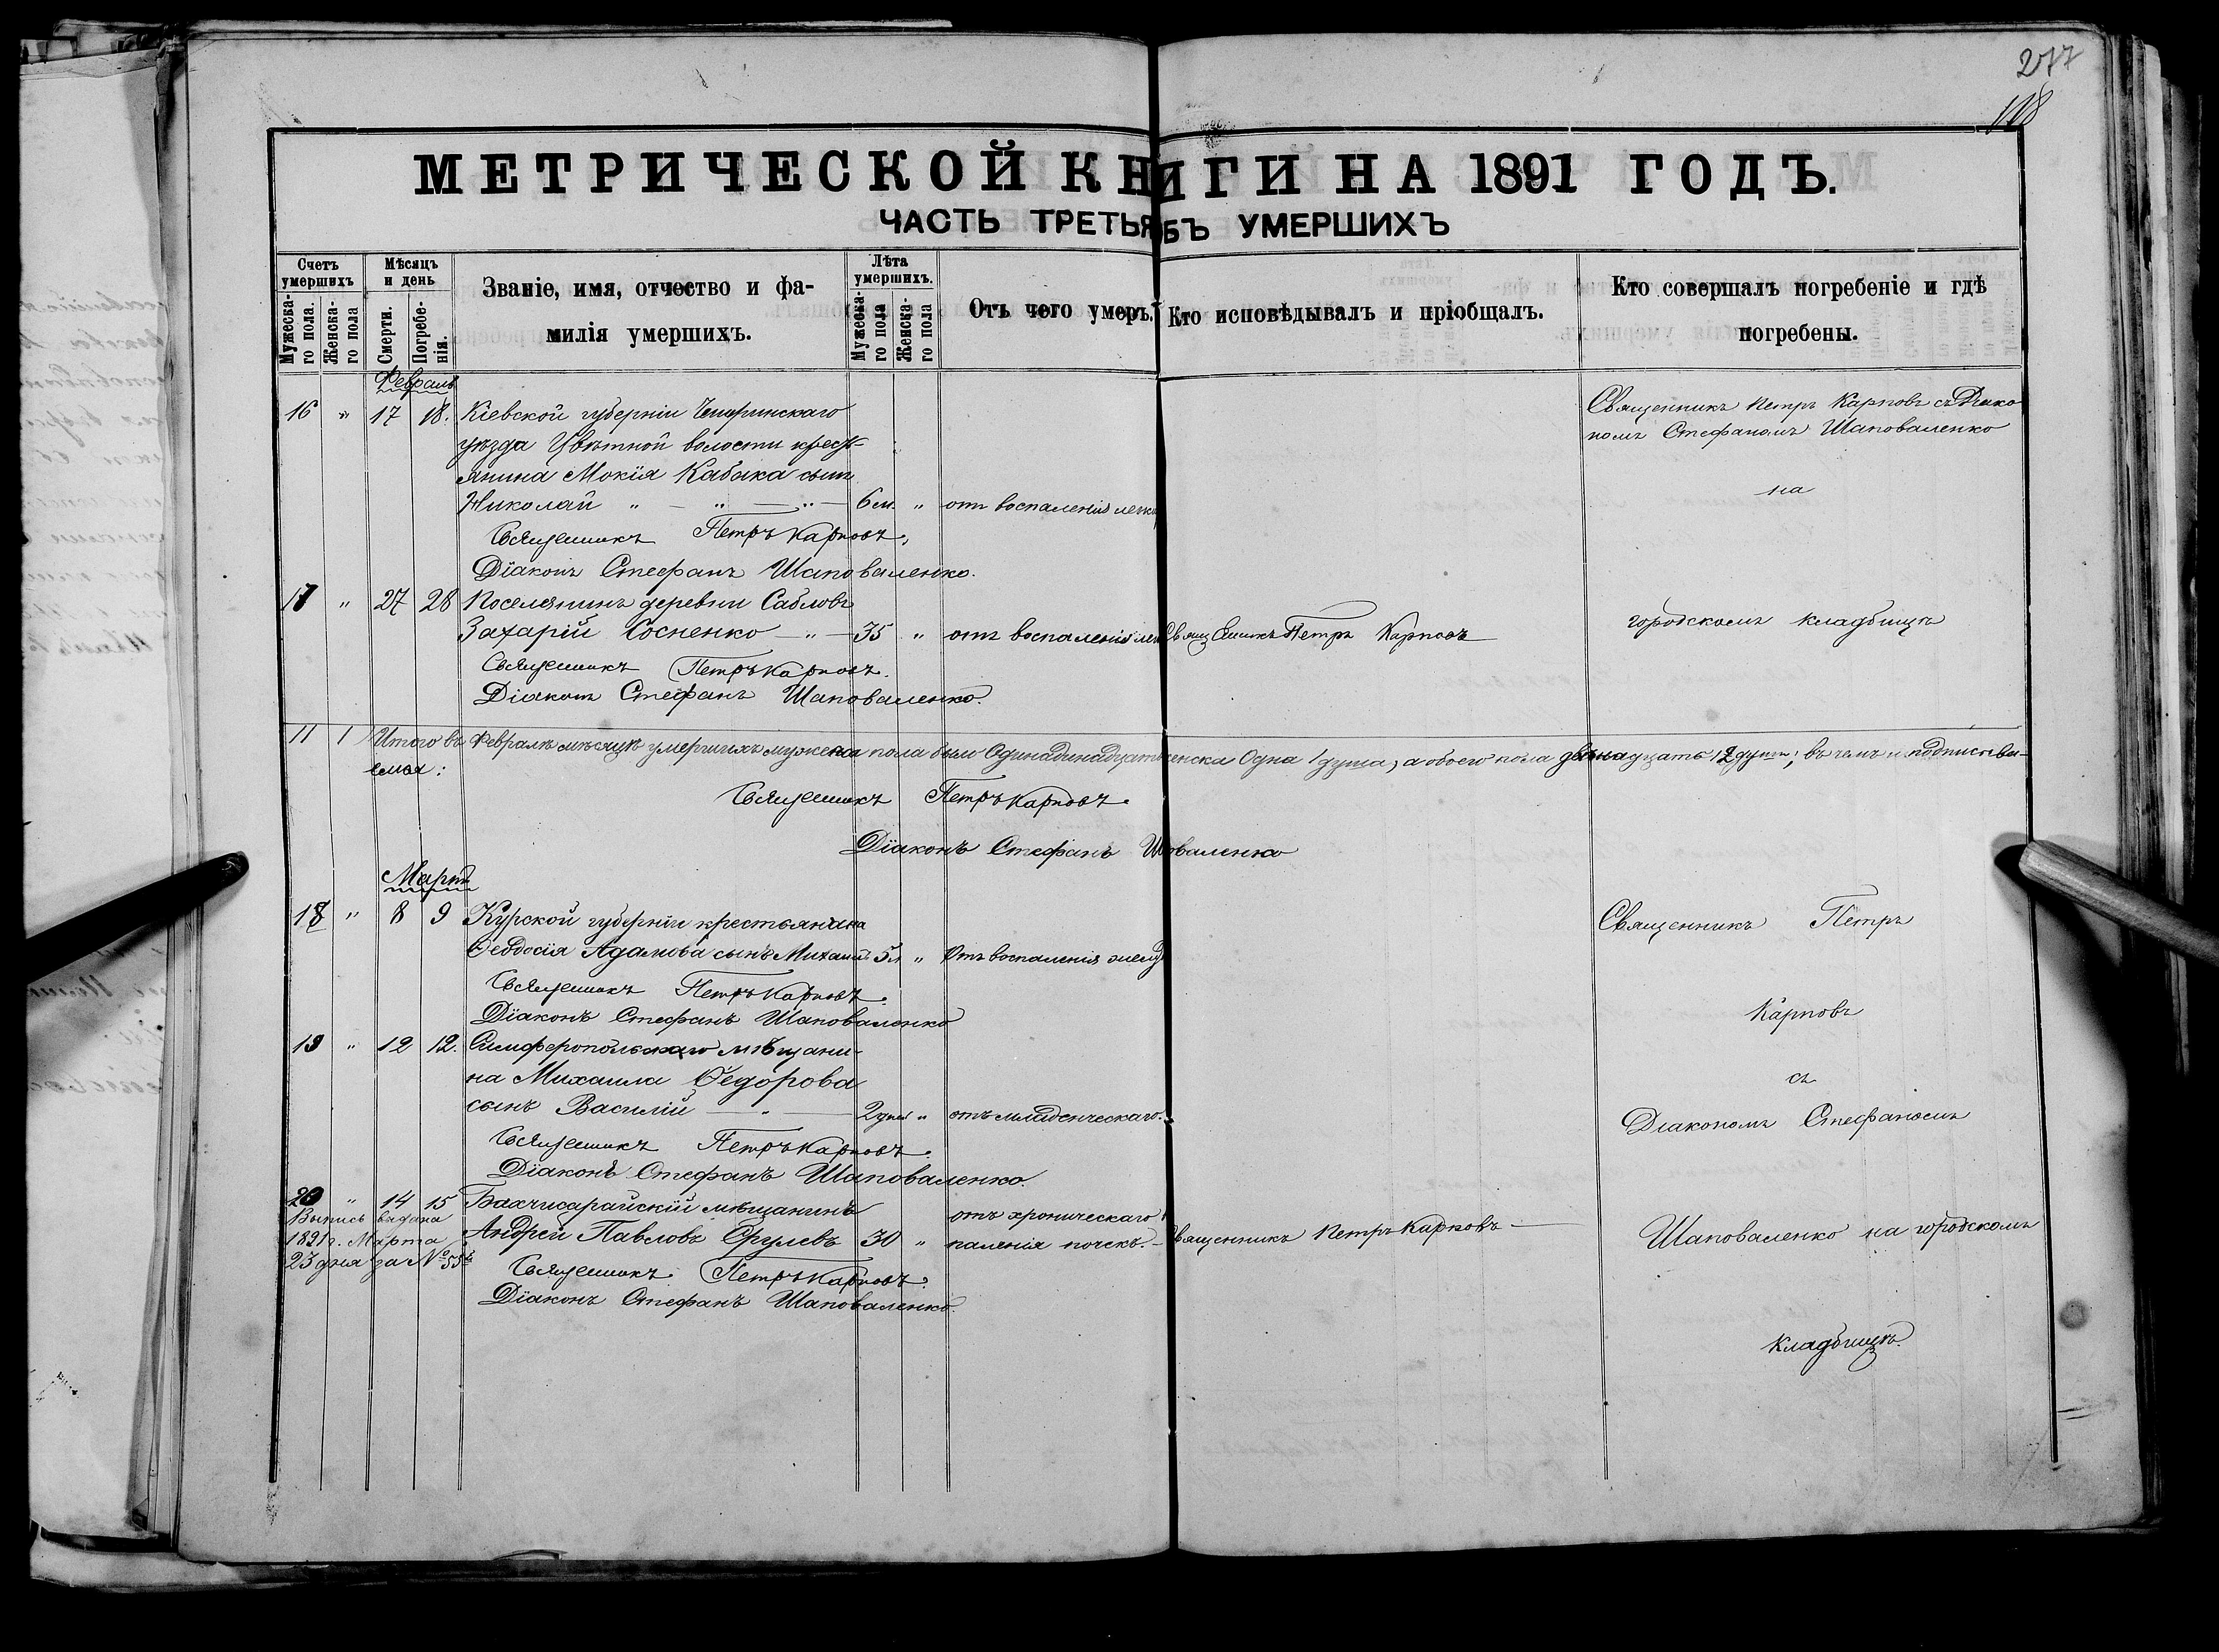 277
118
МЕТРИЧЕСКОЙ КНИГИ НА 1891 ГОДЪ.
ЧАСТЬ ТРЕТЬЯ БЪ УМЕРШИХЪ
Счетъ умершихъ
Мужеска-го пола.
Женска-го пола
Мѣсяцъ и день
Смерти.
Погребе-нія.
Званіе, имя, отчество и фа-
милія умершихъ.
Лѣта умершихъ.
Мужеска-го пола
Женска-го пола
Отъ чего умеръ.
Кто исповѣдывалъ и пріобщалъ.
Кто совершалъ погребеніе и гдѣ
погребены.
Февраль
16 " 17 18. Кіевской губерніи Чигиринскаго
уѣзда Цвѣтной волости крест-
янина Мокія Кабака сынъ
Николай " — " — " — 6 м. " отъ воспаленія легк
Священникъ Петръ Карповъ.
Діаконъ Стефанъ Шаповаленко.
Священникъ Петръ Карповъ съ Діако
номъ Стефаномъ Шаповаленко
на
17 " 27 28 Поселянинъ деревни Сабловъ
Захарій Косненко — " — 35 " отъ воспаленія лег Священникъ Петръ Карповъ
Священникъ Петръ Карповъ.
Діаконъ Стефанъ Шаповаленко.
городскомъ кладбищѣ
11 1 Итого въ Февралѣ мѣсяцѣ умершихъ мужеска пола было Одинадцать женска Одна 1 душа, а обоего пола двѣнадцать 12 душъ, въ чемъ и подписыва-
емся:
Священникъ Петръ Карповъ.
Діаконъ Стефанъ Шоваленко
Мартъ
18 " 8 9 Курской губерніи крестьянина
Ѳеодосія Адамова сынъ Михаилъ 5 " Отъ воспаленія желуд
Священникъ Петръ Карповъ.
Діаконъ Стефанъ Шаповаленко
Священникъ Петръ
Карповъ
19 " 12 12. Симферопольскаго мѣщани-
на Михаила Ѳедорова
сынъ Василій — " — 2 дней " отъ младенческаго.
Священникъ Петръ Карповъ.
Діаконъ Стефанъ Шаповаленко.
съ
Діакономъ Стефаномъ
20 " 14 15 Бахчисарайскій мѣщанинъ
отъ хроническаго
Андрей Павловъ 30 " паленія почекъ. — Священникъ Петръ Карповъ —
Выпись выдана
1891 г. Марта
23 дня за №
Священникъ Петръ Карповъ.
Діаконъ Стефанъ Шаповаленко.
Шаповаленко на городскомъ
кладбищѣ.